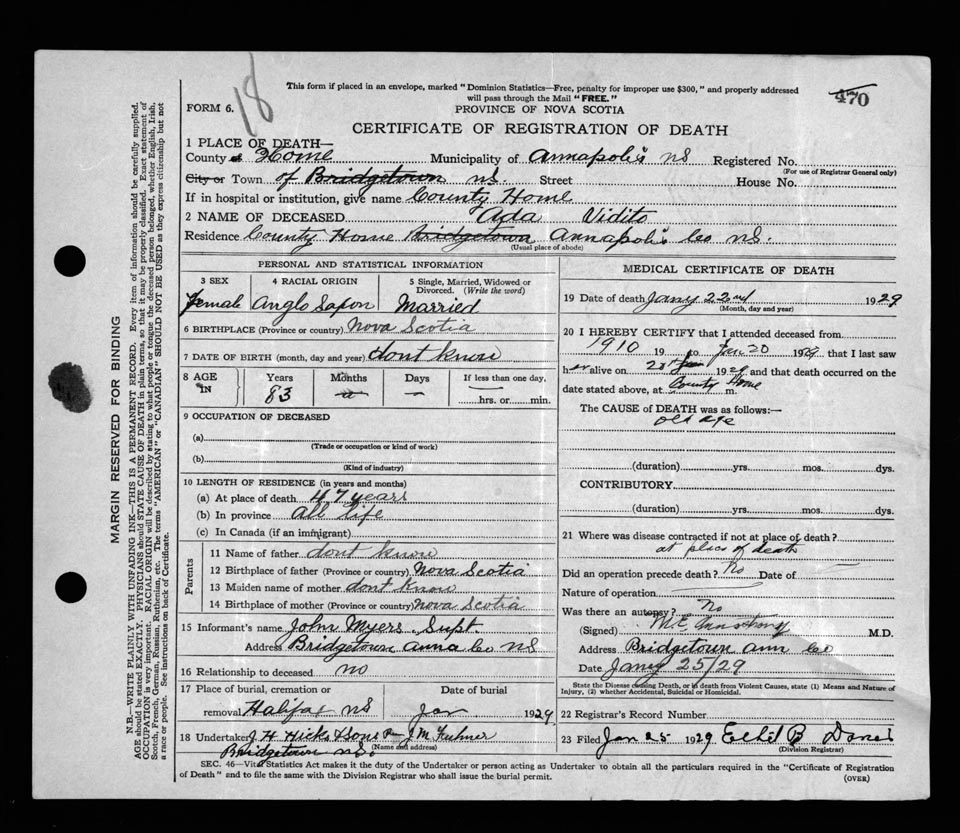 18
This form if placed in an envelope, marked "Dominion Statistics—Free, penalty for improper use $300," and properly addressed
will pass through the Mail "FREE."
470
FORM 6.
PROVINCE OF NOVA SCOTIA
CERTIFICATE OF REGISTRATION OF DEATH
1 PLACE OF DEATH—
County of Home Municipality of Annapolis NS Registered No.
(For use of Registrar General only)
City or Town of Bridgetown NS. Street House No.
If in hospital or institution, give name County Home
2 NAME OF DECEASED Ada Vidito
Residence County Home Bridgetown Annapolis Co NS.
(Usual place of abode)
PERSONAL AND STATISTICAL INFORMATION
3 SEX 4 RACIAL ORIGIN 5 Single, Married, Widowed or Divorced. (Write the word)
Female Anglo Saxon Married
6 BIRTHPLACE (Province or country) Nova Scotia
7 DATE OF BIRTH (month, day and year) dont know
8 AGE IN Years Months Days If less than one day,
83 hrs. or min.
9 OCCUPATION OF DECEASED
(a)
(Trade or occupation or kind of work)
(b)
(Kind of industry)
10 LENGTH OF RESIDENCE (in years and months)
(a) At place of death 47 years
(b) In province all life
(c) In Canada (if an immigrant)
Parents
11 Name of father dont know
12 Birthplace of father (Province or country) Nova Scotia
13 Maiden name of mother dont know
14 Birthplace of mother (Province or country) Nova Scotia
15 Informant's name John Myers Supt
Address Bridgetown Anna Co NS
16 Relationship to deceased no
17 Place of burial, cremation or removal Halifax NS Date of burial Jan 1929
18 Undertaker J H Hicks & Sons J M Fulmer
(Name and address)
Bridgetown NS.
MEDICAL CERTIFICATE OF DEATH
19 Date of death Jany 22nd 1929
(Month, day and year)
20 I HEREBY CERTIFY that I attended deceased from
1910 19 to Jan 20 1929 that I last saw
her alive on 20 Jan 1929 and that death occurred on the
date stated above, at County Home m.
The CAUSE of DEATH was as follows:—
old age
(duration) yrs. mos. dys.
CONTRIBUTORY.
(duration) yrs. mos. dys.
21 Where was disease contracted if not at place of death?
at place of death
Did an operation precede death? No Date of
Nature of operation
Was there an autopsy? No
(Signed) M E Armstrong M.D.
Address Bridgetown Ann Co
Date Jany 25/29
State the Disease causing Death, or in death from Violent Causes, state (1) Means and Nature of
Injury, (2) whether Accidental, Suicidal or Homicidal.
22 Registrar's Record Number
23 Filed Jan 25 1929 B
(Division Registrar)
SEC. 46—Vital Statistics Act makes it the duty of the Undertaker or person acting as Undertaker to obtain all the particulars required in the "Certificate of Registration
of Death" and to file the same with the Division Registrar who shall issue the burial permit.
(OVER)
MARGIN RESERVED FOR BINDING
N.B.—WRITE PLAINLY WITH UNFADING INK—THIS IS A PERMANENT RECORD. Every item of information should be carefully supplied.
AGE should be stated EXACTLY. PHYSICIANS should STATE CAUSE OF DEATH in plain terms, so that it may be properly classified. Exact statement of
OCCUPATION is very important. RACIAL ORIGIN will be described by stating to what people or tongue the deceased person belonged, whether English, Irish,
Scotch, French, German, Russian, Ruthenian, etc. The terms "AMERICAN" or "CANADIAN" SHOULD NOT BE USED as they express citizenship but not
a race or people. See instructions on back of Certificate.